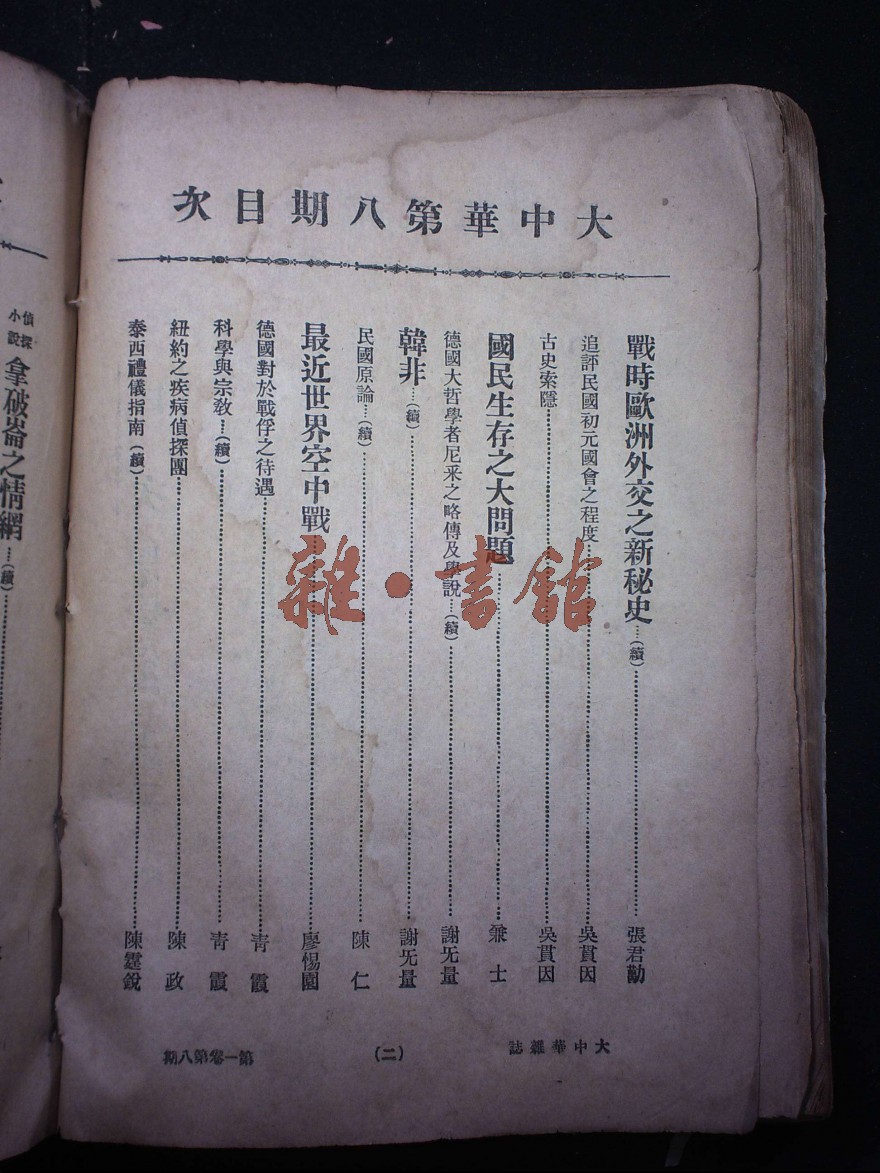 大中華第八期目次
戰時歐洲外交之新秘史…(續)………張君勱
追評民國初元國會之程度………吳貫因
古史索隱………吳貫因
國民生存之大問題………兼士
德國大哲學者尼采之略傳及學說…(續)………謝旡量
韓非…(續)………謝旡量
民國原論…(續)………陳仁
最近世界空中戰………廖惕園
德國對於戰俘之待遇………青霞
科學與宗敎…(續)………青霞
紐約之疾病偵探團………陳政
泰西禮儀指南(續)………陳霆銳
大中華雜誌
(二)
第一卷第八期
偵探小說
拿破崙之情網…(續)………
雜·書館